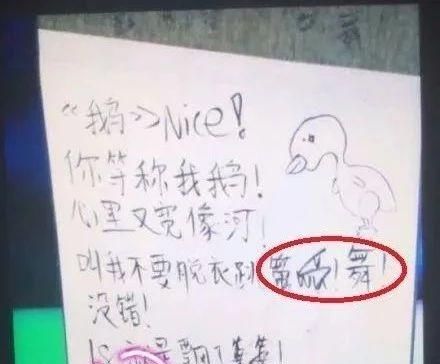 《鹅》Nice!
你等称我鹅!
心里又宽像河!
叫我不要脱衣到 舞!
没错!
Is 是